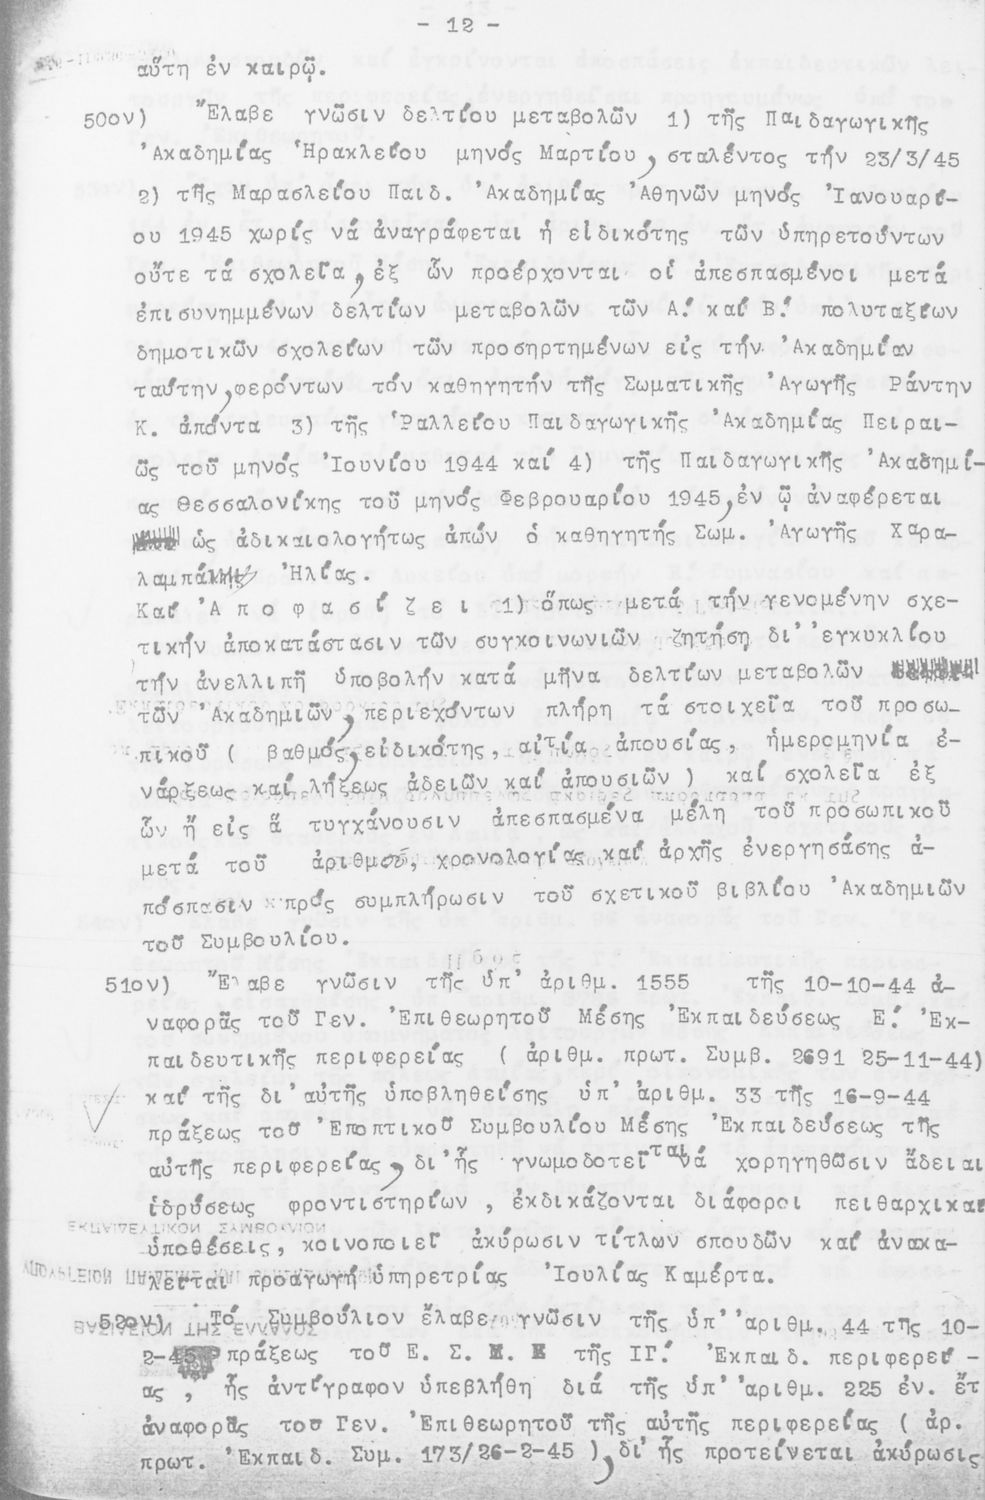 - 12 -
αὕτη ἐν καιρῷ.
50ον) Ἔλαβε γνῶσιν δελτίου μεταβολῶν 1) τῆς Παιδαγωγικῆς
Ἀκαδημίας Ἡρακλείου μηνός Μαρτίου, σταλέντος τήν 23/3/45
2) τῆς Μαρασλείου Παιδ. Ἀκαδημίας Ἀθηνῶν μηνός Ἰανουαρί-
ου 1945 χωρίς νά ἀναγράφεται ἡ εἰδικότης τῶν ὑπηρετούντων
οὔτε τά σχολεῖα, ἐξ ὧν προέρχονται οἱ ἀπεσπασμένοι μετά
ἐπισυνημμένων δελτίων μεταβολῶν τῶν Α.' καί Β.' πολυταξίων
δημοτικῶν σχολείων τῶν προσηρτημένων εἰς τήν Ἀκαδημίαν
ταύτην, φερόντων τόν καθηγητήν τῆς Σωματικῆς Ἀγωγῆς Ράντην
Κ. ἀπόντα 3) τῆς Ῥαλλείου Παιδαγωγικῆς Ἀκαδημίας Πειραι-
ῶς τοῦ μηνός Ἰουνίου 1944 καί 4) τῆς Παιδαγωγικῆς Ἀκαδημί-
ας Θεσσαλονίκης τοῦ μηνός Φεβρουαρίου 1945, ἐν ᾧ ἀναφέρεται
ὡς ἀδικαιολογήτως ἀπών ὁ καθηγητής Σωμ. Ἀγωγῆς Χαρα-
λαμπάκης Ἠλίας.
Καί Ἀ π ο φ α σ ί ζ ε ι 1) ὅπως μετά τήν γενομένην σχε-
τικήν ἀποκατάστασιν τῶν συγκοινωνιῶν ζητήση δι' ἐγκυκλίου
τήν ἀνελλιπῆ ὑποβολήν κατά μῆνα δελτίων μεταβολῶν
τῶν Ἀκαδημιῶν, περιεχόντων πλήρη τά στοιχεῖα τοῦ προσω-
πικοῦ ( βαθμός, εἰδικότης, αἰτία ἀπουσίας, ἡμερομηνία ἐ-
νάρξεως καί λήξεως ἀδειῶν καί ἀπουσιῶν ) καί σχολεῖα ἐξ
ὧν ἤ εἰς ἅ τυγχάνουσιν ἀπεσπασμένα μέλη τοῦ προσωπικοῦ
μετά τοῦ ἀριθμοῦ, χρονολογίας καί ἀρχῆς ἐνεργησάσης ἀ-
πόσπασιν πρός συμπλήρωσιν τοῦ σχετικοῦ βιβλίου Ἀκαδημιῶν
τοῦ Συμβουλίου.
51ον) Ἔλαβε γνῶσιν τῆς ὑπ' ἀριθμ. 1555 τῆς 10-10-44 ἀ-
ναφορᾶς τοῦ Γεν. Ἐπιθεωρητοῦ Μέσης Ἐκπαιδεύσεως Ε.' Ἐκ-
παιδευτικῆς περιφερείας ( ἀριθμ. πρωτ. Συμβ. 2691 25-11-44)
καί τῆς δι' αὐτῆς ὑποβληθείσης ὑπ' ἀριθμ. 33 τῆς 16-9-44
πράξεως τοῦ Ἐποπτικοῦ Συμβουλίου Μέσης Ἐκπαιδεύσεως τῆς
αὐτῆς περιφερείας, δι' ἧς γνωμοδοτεῖται νά χορηγηθῶσιν ἄδειαι
ἱδρύσεως φροντιστηρίων, ἐκδικάζονται διάφοροι πειθαρχικαί
ὑποθέσεις, κοινοποιεῖ ἀκύρωσιν τίτλων σπουδῶν καί ἀνακα-
λεῖται προαγωγή ὑπηρετρίας Ἰουλίας Καμέρτα.
52ον) Τό Συμβούλιον ἔλαβε γνῶσιν τῆς ὑπ' ἀριθμ. 44 της 10-
2-45 πράξεως τοῦ Ε. Σ. Μ. Ε τῆς ΙΓ.' Ἐκπαιδ. περιφερεί -
ας , ἧς ἀντίγραφον ὑπεβλήθη διά τῆς ὑπ' ἀριθμ. 225 ἐν. ἔτ
ἀναφορᾶς του Γεν. Ἐπιθεωρητοῦ τῆς αὐτῆς περιφερείας ( ἀρ.
πρωτ. Ἐκπαιδ. Συμ. 173/26-2-45 ), δι' ἧς προτείνεται ἀκύρωσις